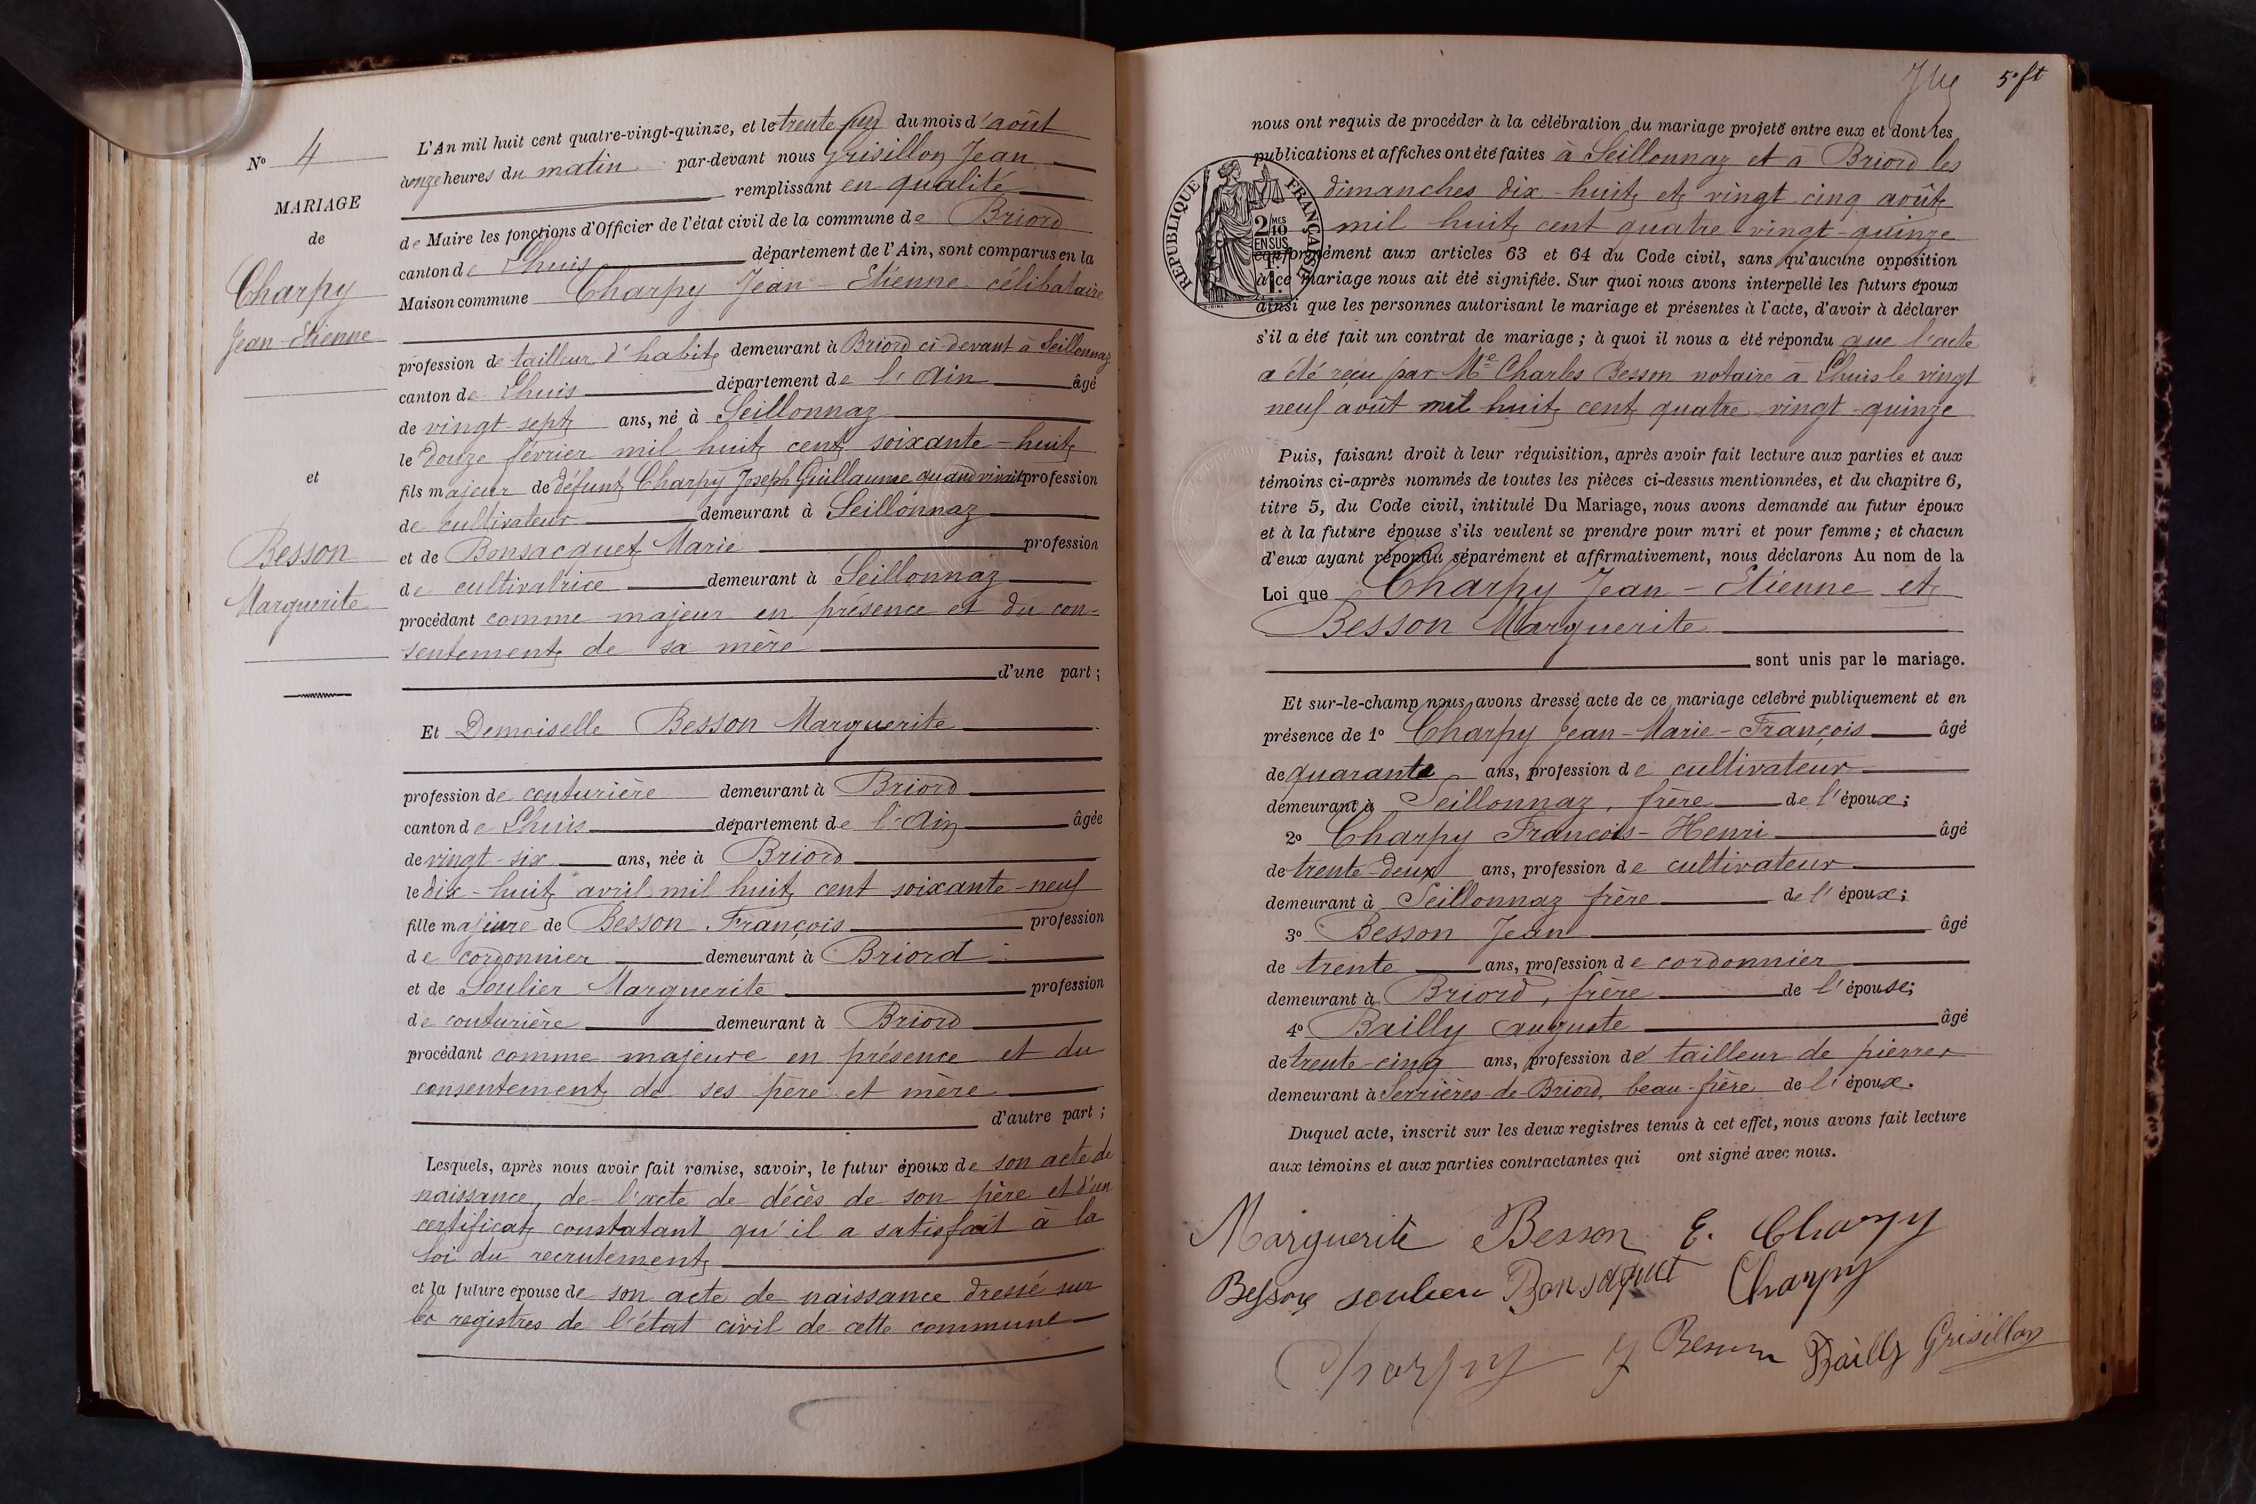 N° 4
MARIAGE
de
Charpy
Jean-Etienne
et
Besson
Marguerite
L'An mil huit cent quatre-vingt-quinze, et le trente un du mois d'août
à onze heures du matin par-devant nous Grisillon Jean
remplissant en qualité
de Maire les fonctions d'Officier de l'état civil de la commune de Briord
canton de Lhuis département de l'Ain, sont comparus en la
Maison commune Charpy Jean-Etienne célibataire
profession de tailleur d'habits demeurant à Briord ci devant à Seillonnaz
canton de Lhuis département de l'Ain âgé
de vingt-sept ans, né à Seillonnaz
le douze février mil huit cent soixante-huit
fils majeur de défunt Charpy Joseph Guillaume quand vivait profession
de cultivateur demeurant à Seillonnaz
et de Bonsacquet Marie profession
de cultivatrice demeurant à Seillonnaz
procédant comme majeur en présence et du con-
sentement de sa mère
d'une part;
Et Demoiselle Besson Marguerite
profession de couturière demeurant à Briord
canton de Lhuis département de l'Ain âgée
de vingt-six ans, née à Briord
le dix-huit avril mil huit cent soixante-neuf
fille majeure de Besson François profession
de cordonnier demeurant à Briord
et de Soulier Marguerite profession
de couturière demeurant à Briord
procédant comme majeure en présence et du
consentement de ses père et mère
d'autre part;
Lesquels, après nous avoir fait remise, savoir, le futur époux de son acte de
naissance, de l'acte de décès de son père et d'un
certificat constatant qu'il a satisfait à la
loi du recrutement
et la future épouse de son acte de naissance dressé sur
les registres de l'état civil de cette commune
5e ft
nous ont requis de procéder à la célébration du mariage projeté entre eux et dont les
publications et affiches ont été faites à Seillonnaz et à Briord les
dimanches dix-huit et vingt cinq août
mil huit cent quatre-vingt-quinze
RÉPUBLIQUE FRANÇAISE
2/10 MES
EN SUS
conformément aux articles 63 et 64 du Code civil, sans qu'aucune opposition
à ce mariage nous ait été signifiée. Sur quoi nous avons interpellé les futurs époux
ainsi que les personnes autorisant le mariage et présentes à l'acte, d'avoir à déclarer
s'il a été fait un contrat de mariage; à quoi il nous a été répondu que l'acte
a été reçu par Me Charles Besson notaire à Lhuis le vingt
neuf août mil huit cent quatre-vingt-quinze
Puis, faisant droit à leur réquisition, après avoir fait lecture aux parties et aux
témoins ci-après nommés de toutes les pièces ci-dessus mentionnées, et du chapitre 6,
titre 5, du Code civil, intitulé Du Mariage, nous avons demandé au futur époux
et à la future épouse s'ils veulent se prendre pour mari et pour femme; et chacun
d'eux ayant répondu séparément et affirmativement, nous déclarons Au nom de la
Loi que Charpy Jean-Etienne et
Besson Marguerite
sont unis par le mariage.
Et sur-le-champ nous avons dressé acte de ce mariage célébré publiquement et en
présence de 1° Charpy Jean-Marie-François âgé
de quarante ans, profession de cultivateur
demeurant à Seillonnaz, frère de l'époux;
2° Charpy François-Henri âgé
de trente-deux ans, profession de cultivateur
demeurant à Seillonnaz frère de l'époux;
3° Besson Jean âgé
de trente ans, profession de cordonnier
demeurant à Briord, frère de l'épouse;
4° Bailly Auguste âgé
de trente-cinq ans, profession de tailleur de pierres
demeurant à Serrières-de-Briord, beau-frère de l'époux.
Duquel acte, inscrit sur les deux registres tenus à cet effet, nous avons fait lecture
aux témoins et aux parties contractantes qui ont signé avec nous.
Marguerite Besson E. Charpy
Besson soulier Bonsaquet Charpy
Charpy J Besson Bailly Grisillon